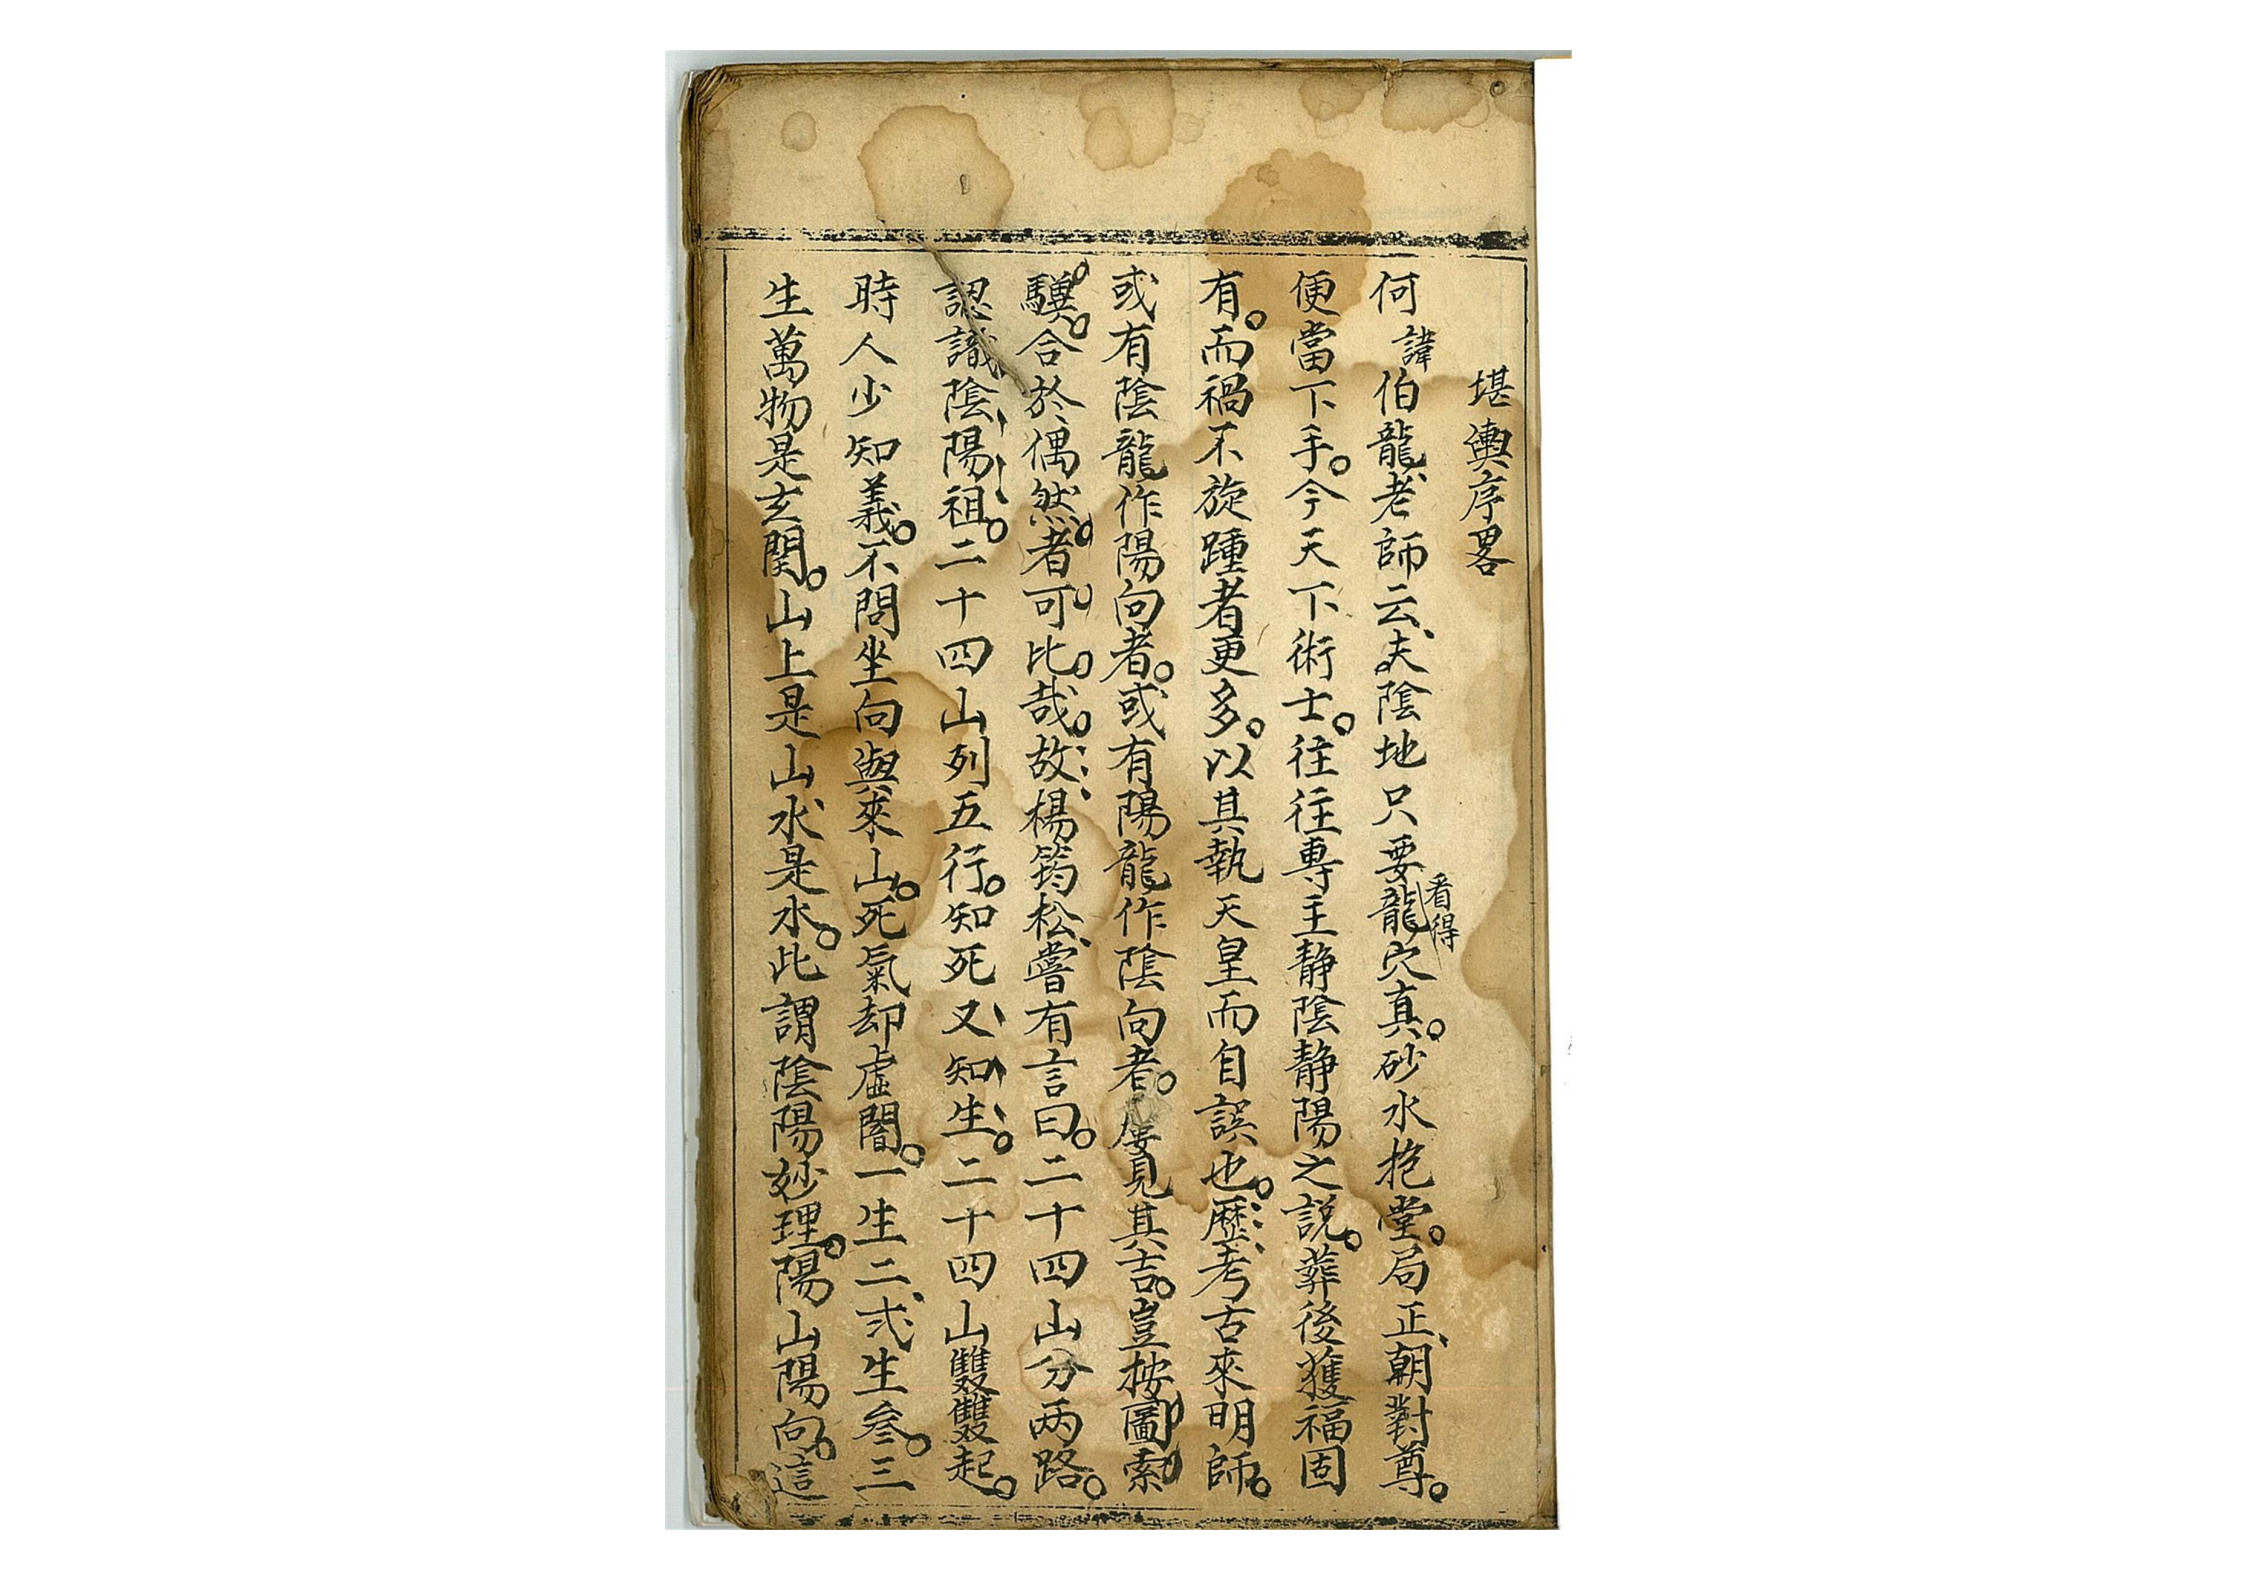 堪輿序畧
何諱伯龍老師云、夫陰地只要看得龍穴真。砂水抱堂。局正、朝對尊。
便當下手。今天下術士。往往專主静陰静陽之説。葬後獲福固
有。而禍不旋踵者更多。以其執天皇而自誤也。歷考古來明師。
或有陰龍作陽向者。或有陽龍作陰向者。屢見其吉。豈按圖索
驥。合於偶然者可比哉。故楊筠松、嘗有言曰。二十四山分两路。
認識陰陽祖。二十四山列五行。知死又知生。二十四山雙雙起。
時人少知義。不問坐向與來山。死氣却虛闇。一生二、弍生叁。三
生萬物是玄関。山上是山水是水。此謂陰陽妙理。陽山陽向。這